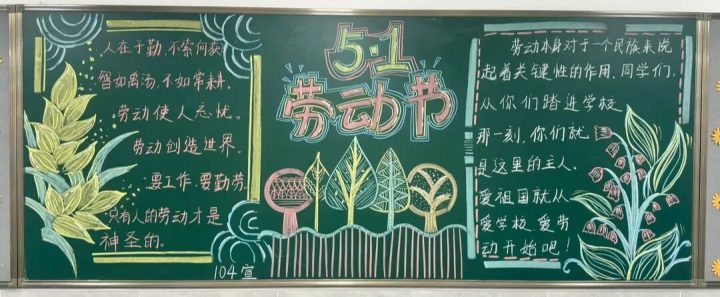 人在于勤,不索何获
智如禹汤,不如常耕.
劳动使人忘忧.
劳动创造世界.
要工作,要勤劳.
只有人的劳动才是
神圣的.
104宣
5·1
劳动节
劳动本身对于一个民族来说
起着关键性的作用,同学们,
从你们踏进学校
那一刻,你们就
是这里的主人,
爱祖国就从
爱学校、爱劳
动开始吧!